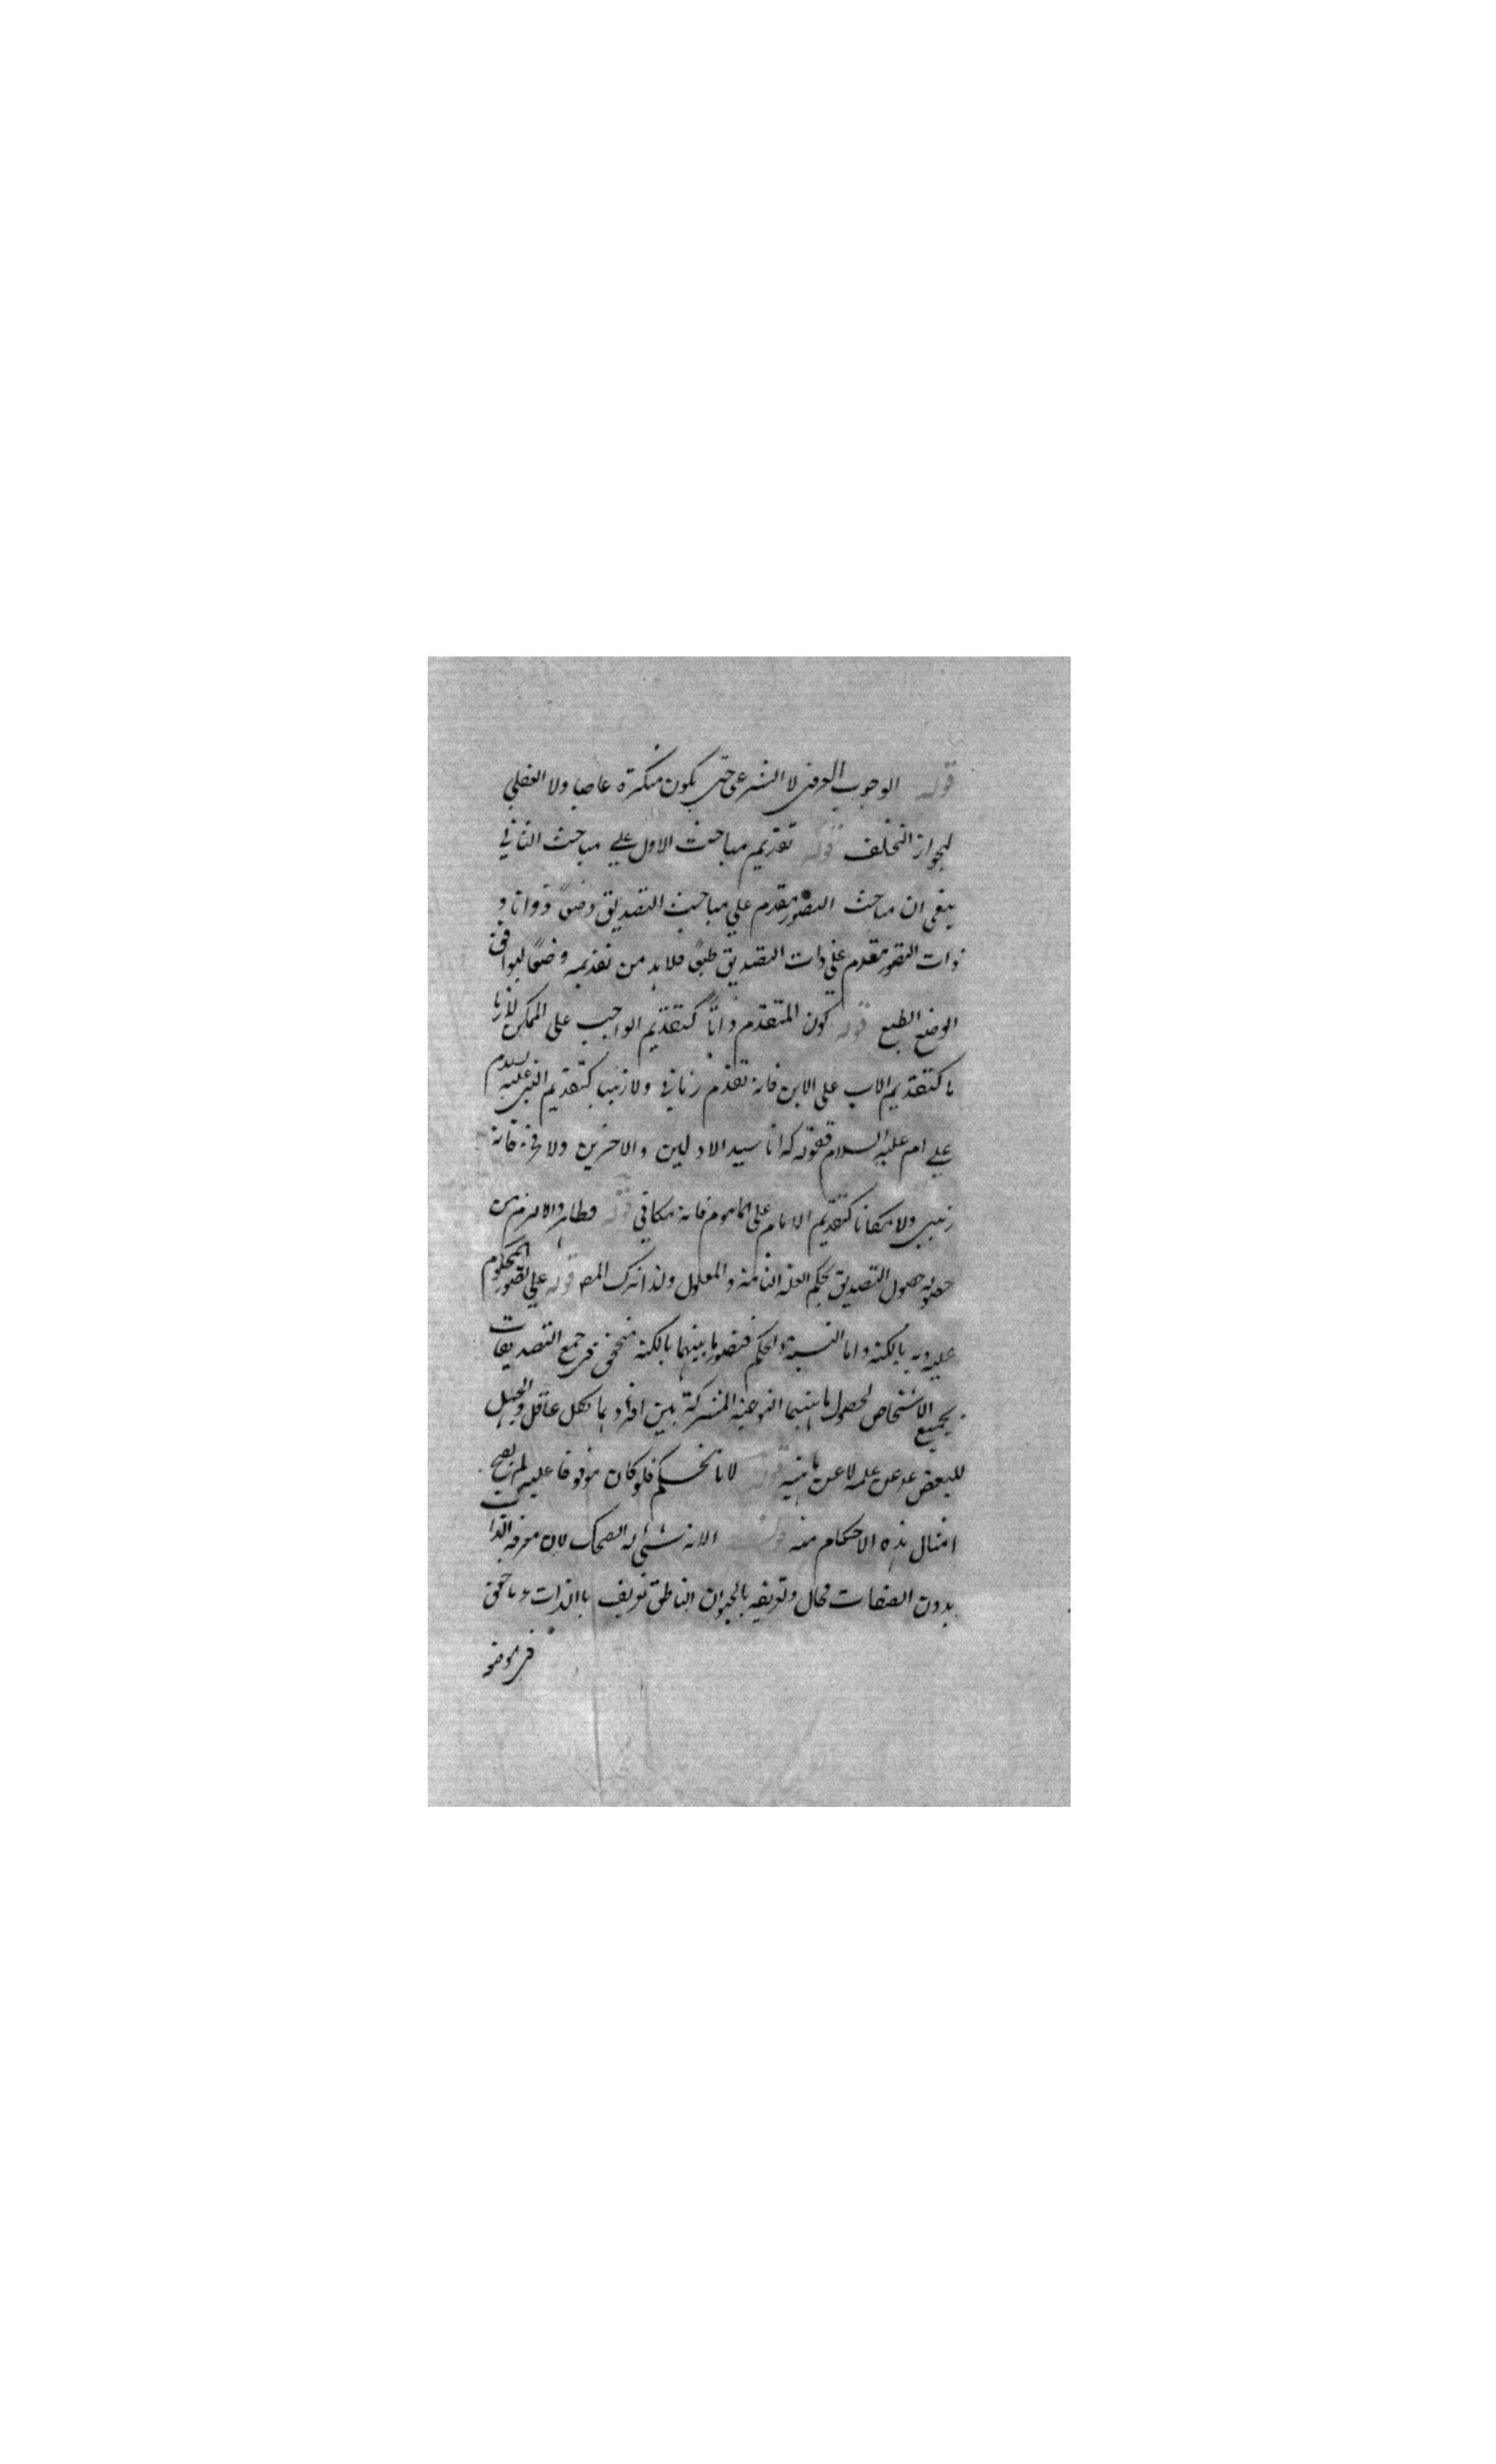 قوله الوجوب العرفي لا الشرعي حتى يكون منكره عاصيا ولا العقلي
لجواز التخلف قوله تقديم مباحث الاول على مباحث الثاني
يعني ان مباحث التصور مقدم على مباحث التصديق وضعًا وذواتا و
ذات التصور مقدم على ذات التصديق طبعًا فلا بد من تقديمه وضعًا ليوافق
الوضع الطبع قوله كون المتقدم ذاتًا كتقديم الواجب على الممكن لا زما
نا كتقديم الاب على الابن فانه تقدم زماني ولا رتبيا كتقديم النبي عليه السلام
على ادم عليه السلام فقوله انا سيد الاولين والاخرين ولا فخر فانه
رتبي ولا مكانا كتقديم الامام على الماموم فانه مكاني قوله فظاهر والا لزم من
حصوله حصول التصديق بحكم العلة التامة والمعلول ولذا ترك المص قوله على تصور المحكوم
عليه وبه بالكنه واما النسبة والحكم فتصور ماهيتهما بالكنه متحقق في جمع التصديقات
بجميع الاشخاص لحصول ماهيتهما النوعية المشتركة بين افرادهما لكل عاقل والجهل
للبعض عن علمه لا عن ماهيته قوله لانا نحكم فلو كان موقوفا عليه لم يصح
امثال هذه الاحكام منه قوله الانه شئ له الضحك لان معرفة الذات
بدون الصفات محال وتعريفه بالحيوان الناطق تعريف بالذات وما حقق
في موضعه